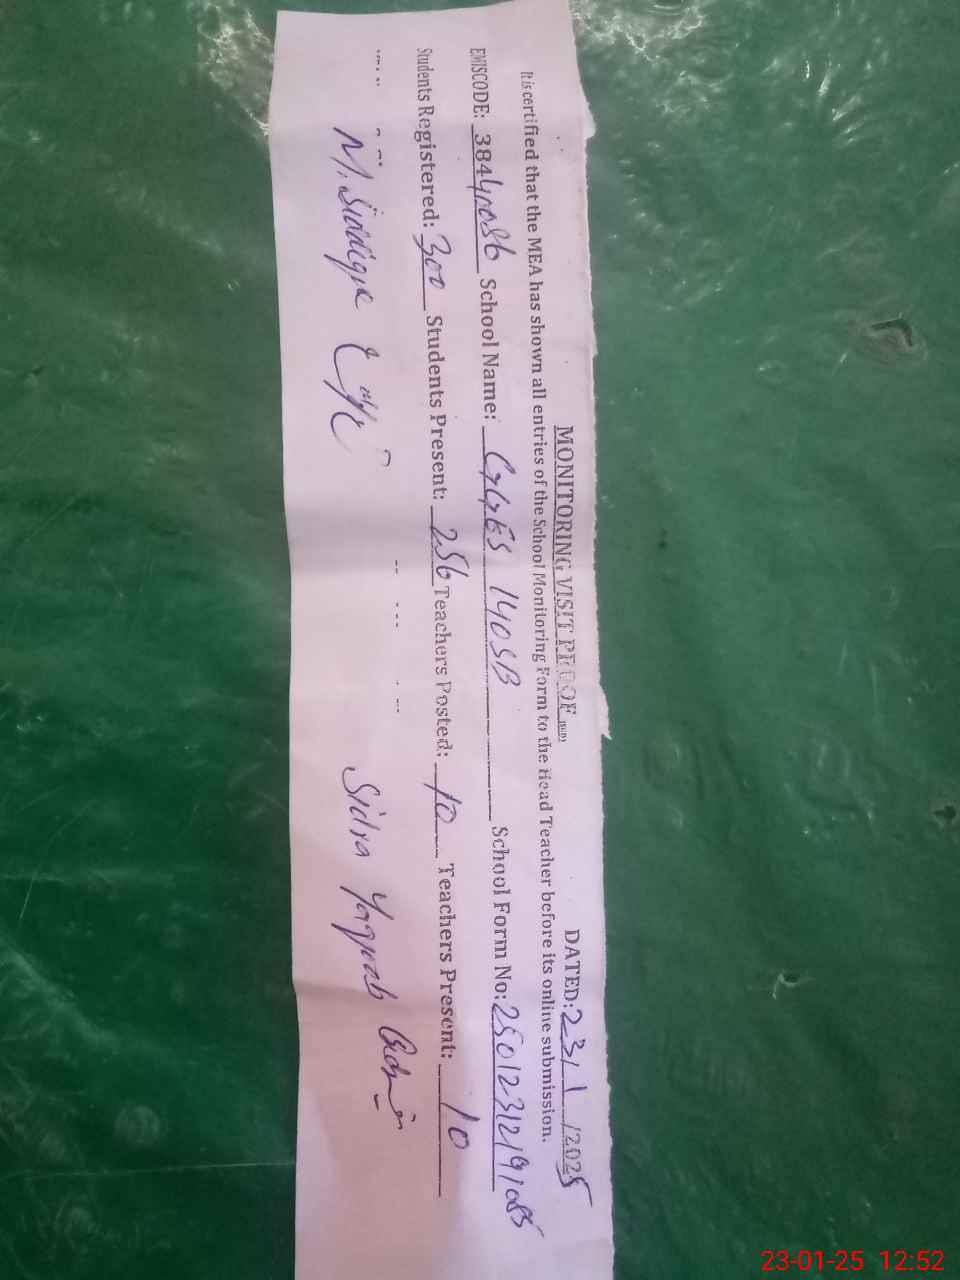 MONITORING VISIT PROOF DATED: 23/1/2025
It is certified that the MEA has shown all entries of the School Monitoring Form to the Head Teacher before its online submission.
EMISCODE: 38440086 School Name: GGES 140SB School Form No: 25012312191085
Students Registered: 300 Students Present: 256 Teachers Posted: 10 Teachers Present: 10
M. Siddique Sidra Yaqoob
23-01-25 12:52